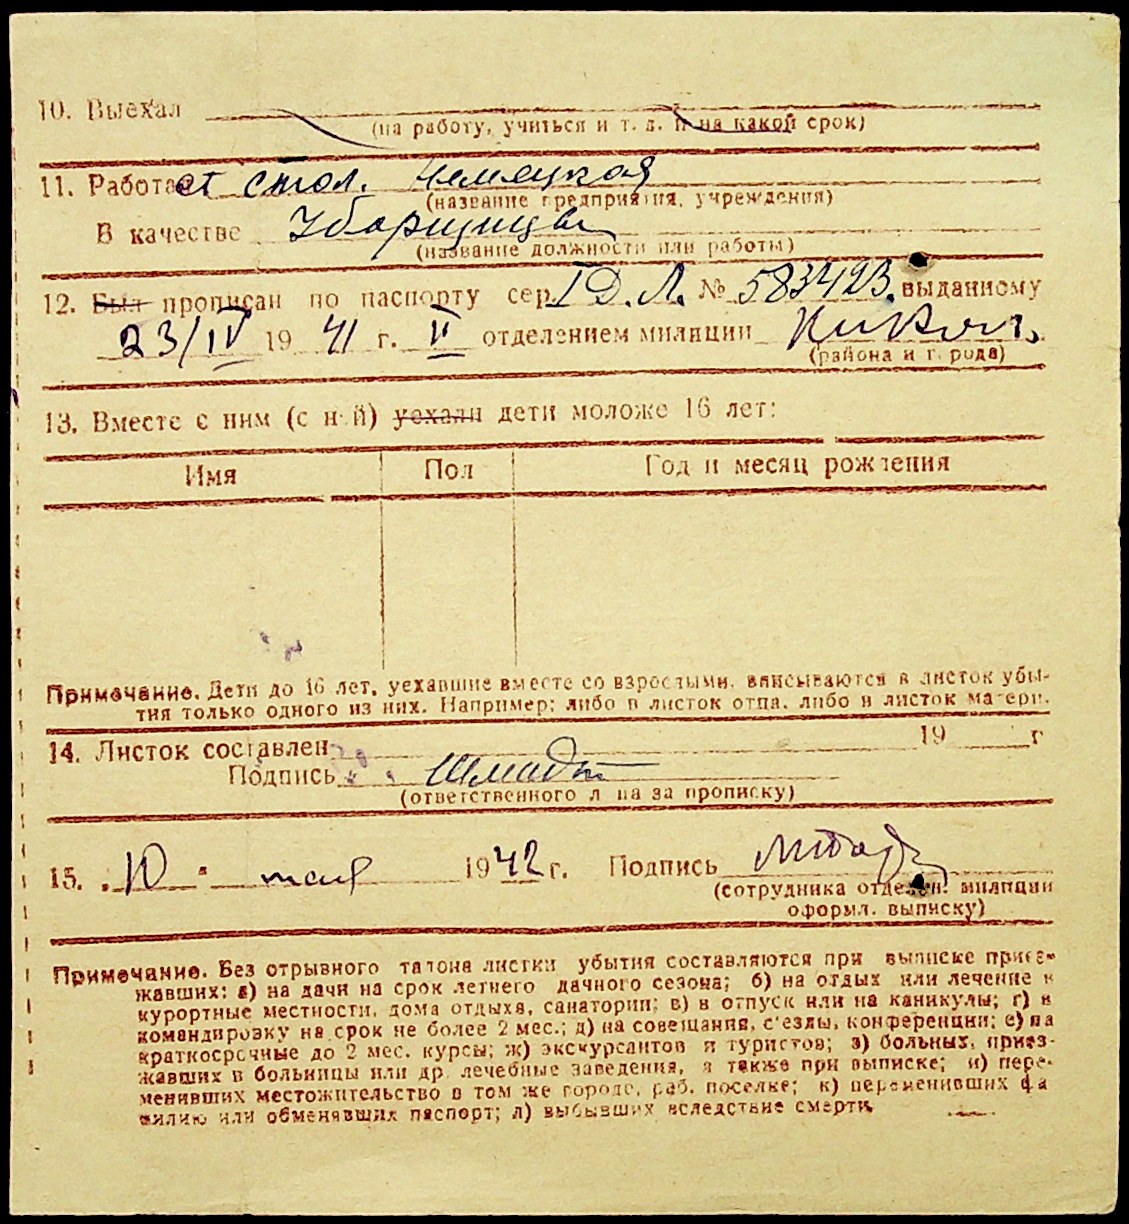 10. Выехал
(на работу, учиться и т. д. и на какой срок)
11. Работает стол. Немецкая
(название предприятия, учреждения)
В качестве Уборщицы
(название должности или работы)
12. Был прописан по паспорту сер. I Д. Л. № 583423. выданному
23/IV 1941 г. II отделением милиции Никол.
(района и города)
13. Вместе с ним (с ней) уехали дети моложе 16 лет:
Имя Пол Год и месяц рождения
Примечание. Дети до 16 лет, уехавшие вместе со взрослыми, вписываются в листок убы-
тия только одного из них. Например: либо в листок отца, либо в листок матери.
14. Листок составлен 19 г
Подпись Шмидт
(ответственного лица за прописку)
15. „10" мая 1942 г. Подпись
(сотрудника отделен. милиции
оформл. выписку)
Примечание. Без отрывного талона листки убытия составляются при выписке приез-
жавших: а) на дачи на срок летнего дачного сезона; б) на отдых или лечение в
курортные местности, дома отдыха, санатории; в) в отпуск или на каникулы; г) в
командировку на срок не более 2 мес.; д) на совещания, с'езды, конференции; е) на
краткосрочные до 2 мес. курсы; ж) экскурсантов и туристов; з) больных, приез-
жавших в больницы или др. лечебные заведения, а также при выписке; и) пере-
менивших местожительство в том же городе, раб. поселке; к) переменивших фа
милию или обменявших паспорт; л) выбывших вследствие смерти.